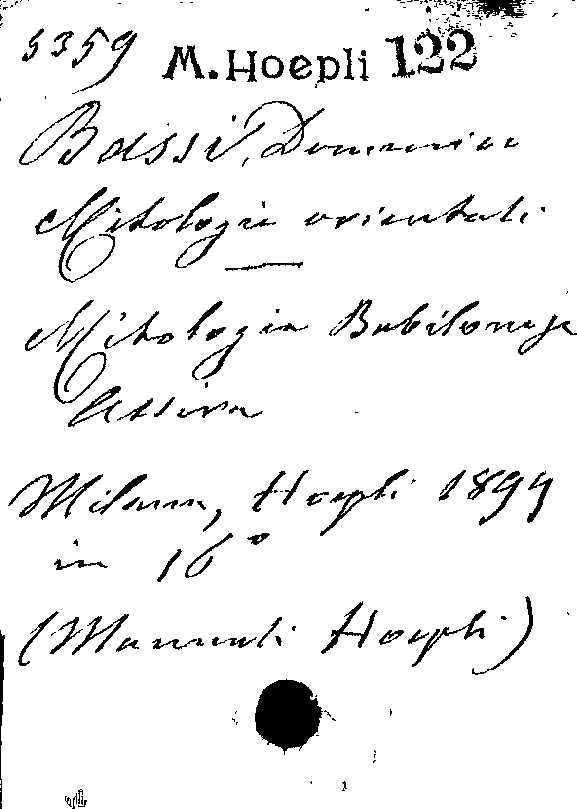 5359 M. Hoepli 122
Bassi, Domenico
Mitologie orientali
Mitologia Babilonese
Assira
Milano, Hoepli 1899
in 16°
(Manuali Hoepli)